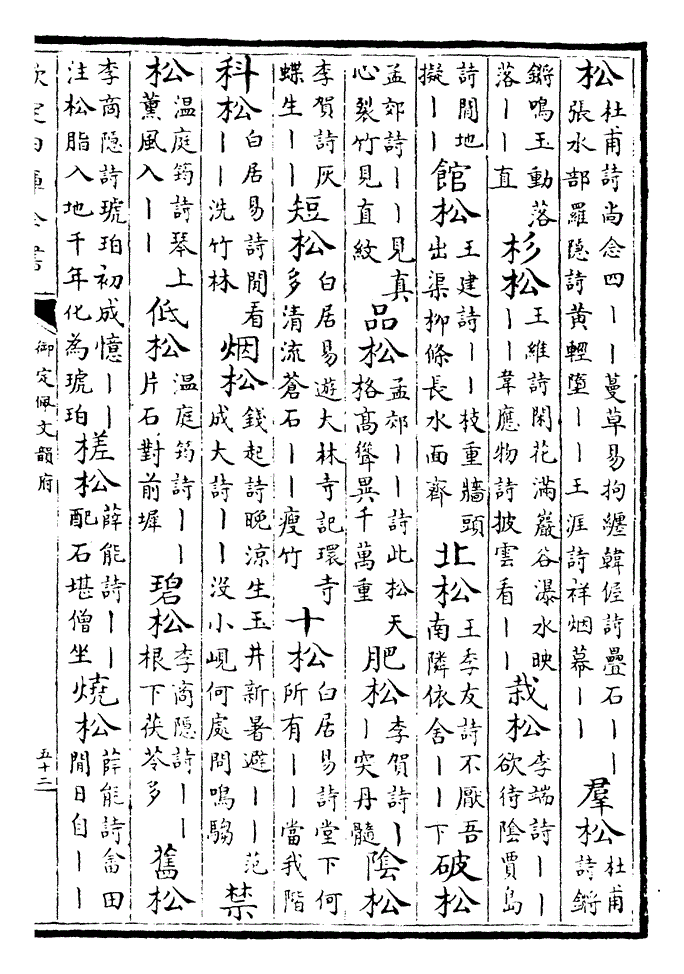 松杜甫詩尚念四丨丨蔓草易拘纏韓偓詩疊石丨丨張水部羅隱詩黃輕墮丨丨王涯詩祥烟幕丨丨羣松杜甫詩鏘
鏘鳴玉動落落丨丨直杉松王維詩閑花滿巖谷瀑水映丨丨韋應物詩披雲看丨丨栽松李端詩丨丨欲待陰賈島
詩閒地擬丨丨館松王建詩丨丨枝重牆頭出渠柳條長水面齊北松王季友詩不厭吾南隣依舍丨丨下破松
孟郊詩丨丨見真心裂竹見直紋品松孟郊丨丨詩此松天格高聳異千萬重肥松李賀詩丨丨突丹髓陰松
李賀詩灰蝶生丨丨短松白居易遊大林寺記環寺多清流蒼石丨丨瘦竹十松白居易詩堂下何所有丨丨當我階
科松白居易詩閒看丨丨洗竹林烟松錢起詩晚涼生玉井新暑避丨丨范成大詩丨丨没小峴何處問鳴騶禁
松溫庭筠詩琴上薰風入丨丨低松溫庭筠詩丨丨片石對前墀碧松李商隱詩丨丨根下茯苓多舊松
李商隱詩琥珀初成憶丨丨注松脂入地千年化為琥珀槎松薛能詩丨丨配石堪僧坐燒松薛能詩畬田閒日自丨丨
欽定四庫全書
御定佩文韻府
五十二